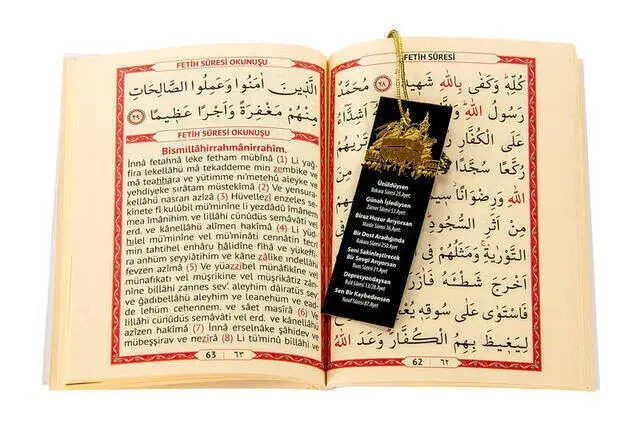 FETİH SÛRESİ
كُلِّهٖ وَكَفٰى بِاللّٰهِ شَهٖيدًا ﴿٢٨﴾ مُحَمَّدٌ
رَسُولُ اللّٰهِ اَشِدَّٓاءُ
عَلَى الْكُفَّارِ تَرٰيهُمْ
رُكَّعًا سُجَّدًا
اللّٰهِ وَرِضْوَانًا
مِنْ اَثَرِ السُّجُودِ
التَّوْرٰيةِ وَمَثَلُهُمْ
اَخْرَجَ شَطْـَٔهُ فَاٰزَرَ
فَاسْتَوٰى عَلٰى سُوقِهٖ
لِيَغٖيظَ بِهِمُ الْكُفَّارَ وَعَدَ اللّٰهُ
62 ٦٢
Üzüldüysen
Bakara Sûresi 25.Ayet
Günah İşlediysen
Zumer Sûresi 53.Ayet
Biraz Huzur Arıyorsan
Maide Sûresi 16.Ayet
Bir Dost Aradığında
Bakara Sûresi 250.Ayet
Seni Sakinleştirecek
Bir Sevgi Arıyorsan
Rum Sûresi 21.Ayet
Depresyondaysan
Rad Sûresi 13/28.Ayet
Sen Bir Kaybedensen
Yusuf Sûresi 87.Ayet
FETİH SÛRESİ OKUNUŞU
الَّذٖينَ اٰمَنُوا وَعَمِلُوا الصَّالِحَاتِ
مِنْهُمْ مَغْفِرَةً وَاَجْرًا عَظٖيمًا ﴿٢٩﴾
FETİH SÛRESİ OKUNUŞU
Bismillâhirrahmânirrahîm.
İnnâ fetahnâ leke fetham mübînâ (1) Li yağ-
fira lekellâhü mâ tekaddeme min zembike ve
mâ teahhara ve yütimme ni'metehû aleyke ve
yehdiyeke sırâtam müstekîmâ (2) Ve yensura-
kellâhü nasran azîzâ (3) Hüvellezî enzeles se-
kînete fî kulûbil mü'minîne li yezdâdû îmânem
mea îmânihim. ve lillâhi cünûdüs semâvâti vel
erd. ve kânellâhü alîmen hakîmâ (4) Li yüd-
hılel mü'minîne vel mü'minâti cennâtin tecrî
min tahtihel enhâru hâlidîne fîhâ ve yükeffi-
ra anhüm seyyiâtihim ve kâne zâlike ındellâhi
fevzen azîmâ (5) Ve yüazzibel münâfikîne vel
münâfikâti vel müşrikîne vel müşrikâtiz zânnî-
ne billâhi zannes sev'. aleyhim dâiratüs sev'
ve ğadıbellâhü aleyhim ve leanehüm ve ead-
de lehüm cehennem. ve sâet masîrâ (6) Ve
lillâhi cünûdüs semâvâti vel erd. ve kânellâhü
azîzen hakîmâ (7) İnnâ erselnâke şâhidev ve
mübeşşirav ve nezîrâ (8) Li tü'minû billâhi ve
63 ٦٣